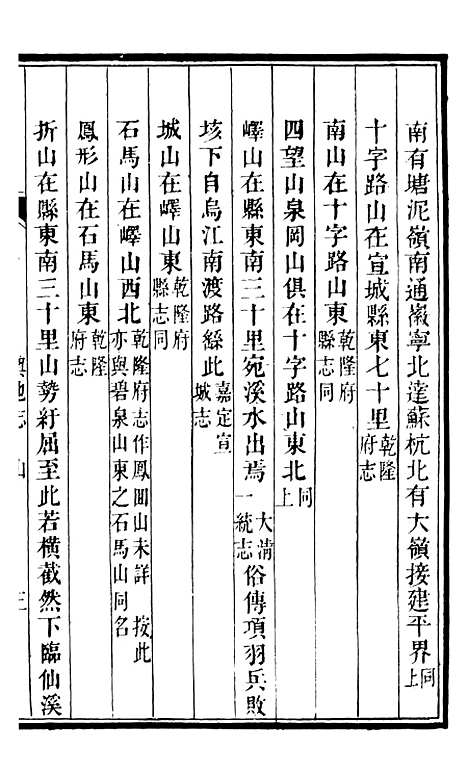 南有塘泥嶺南通徽寧北達蘇杭北有大嶺接建平界同上
十字路山在宣城縣東七十里乾隆府志
南山在十字路山東乾隆府縣志同
四望山泉岡山俱在十字路山東北同上
嶧山在縣東南三十里宛溪水出焉大清一統志俗傳項羽兵敗
垓下自烏江南渡路繇此嘉定宣城志
城山在嶧山東乾隆府縣志同
石馬山在嶧山西北乾隆府志作鳳圖山未詳 按此亦與碧泉山東之石馬山同名
鳳形山在石馬山東乾隆府志
折山在縣東南三十里山勢紆屈至此若橫截然下臨仙溪
輿地志 山 三